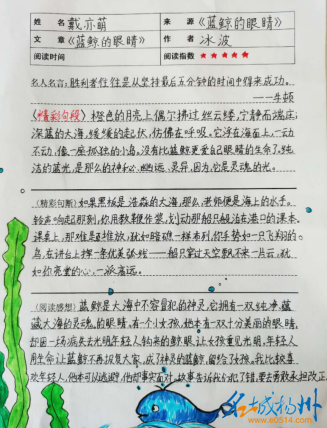 姓名 戴亦萌 来源 《蓝鲸的眼睛》
文章 《蓝鲸的眼睛》 作者 冰波
阅读时间 阅读指数 ★★★★★
名人名言：胜利者往往是从坚持最后五分钟的时间中得来成功。
——牛顿
《精彩句段》橙色的月亮上偶尔拂过一丝云缕，宁静而端庄；
深蓝的大海，缓缓的起伏，仿佛在呼吸。它浮在海面上，一动
不动，像一座孤独的小岛。没有比蓝鲸更爱自己眼睛的生命了。纯
洁的蓝光，是那么的神秘、幽远、灵异，因为，它是灵魂的光。
(精彩句断)如果黑板是浩淼的大海，那么，老师便是海上的水手。
铃声响起那刻，你用教鞭作桨，划动那船只般泊在港口的课本。
课桌上，那难题堆放，犹如暗礁一样布列，你手势如一只飞翔的
鸟，在讲台上挥一条优美弧线——船只穿过天空飘不来一片云，犹
如你亮堂的心，一派高远。
(阅读感想)蓝鲸是大海中不容冒犯的神灵，它拥有一双纯净，蕴
藏大海的灵魂的眼睛，有一个小女孩，她本有一双十分美丽的眼睛，
却因一场病失去光明年轻人钩来的鲸眼，让女孩重见光明，年轻人
用生命让蓝鲸不再报复大家，成了神灵的蓝鲸，留给了女孩，我比较喜
欢年轻人，他本可以逃避，他却事实面对，故事告诉我们犯了错，要去勇敢承担改正
名城扬州
www.e0514.com